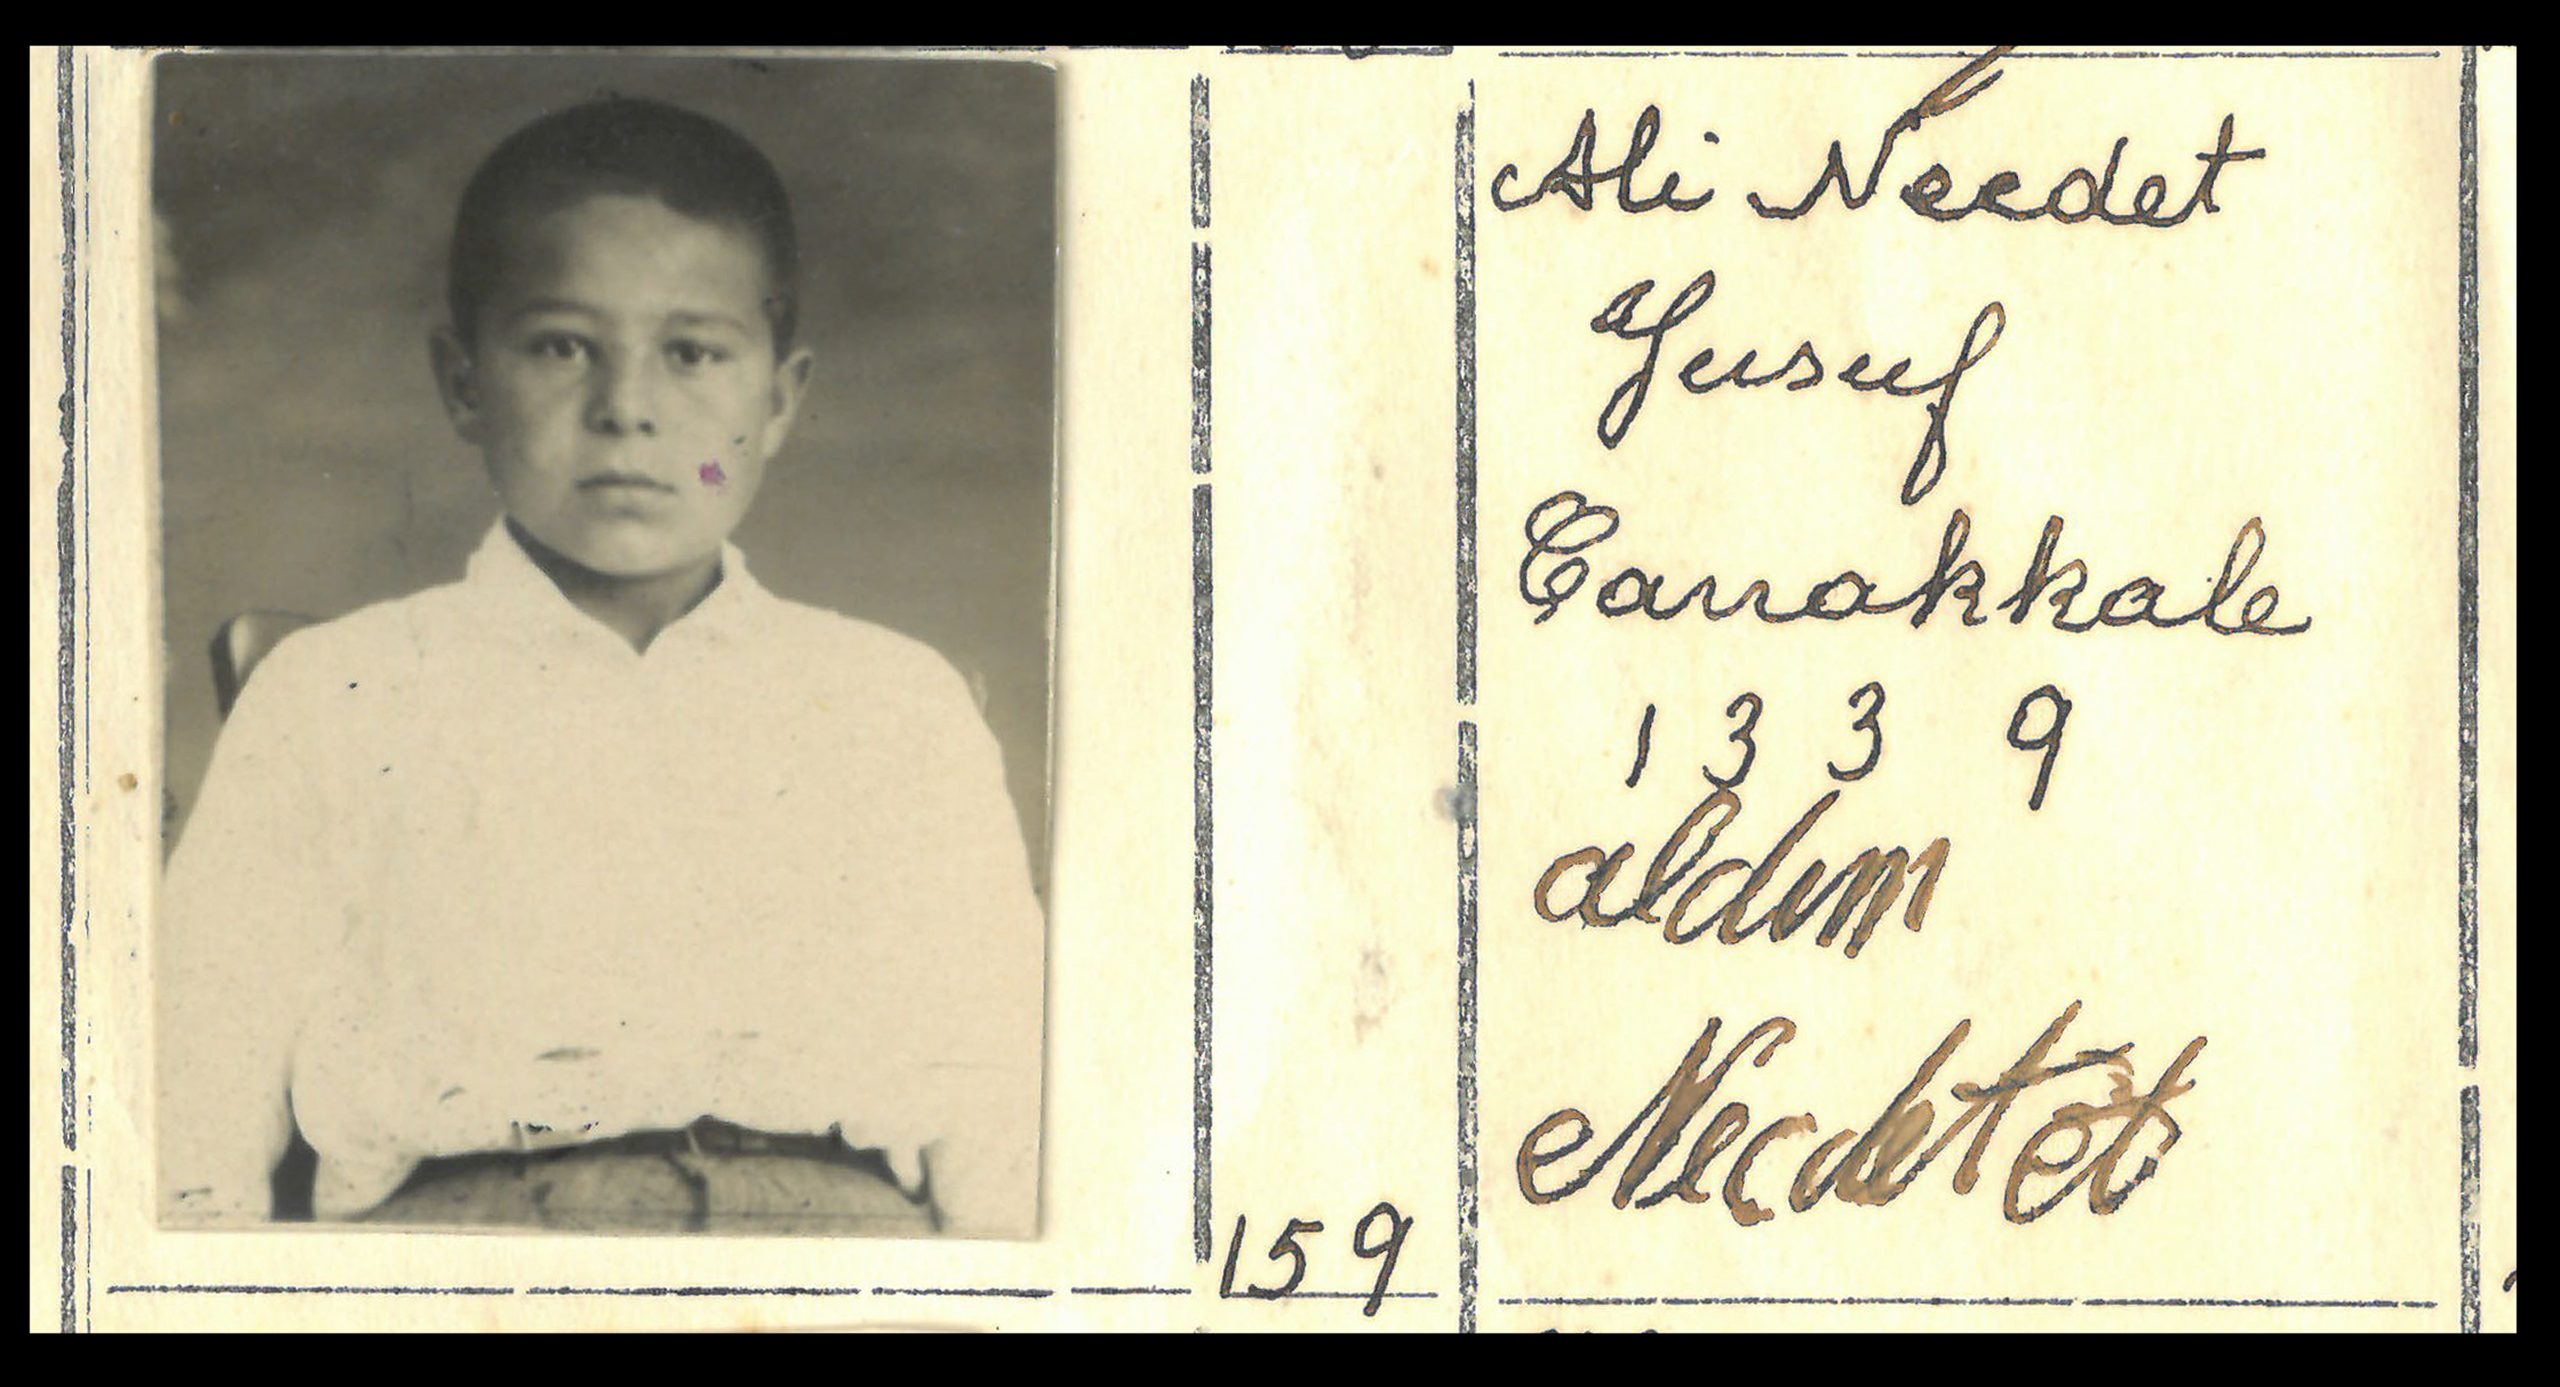 Ali Necdet
Yusuf
Canakkale
1339
aldım
Necdet
159